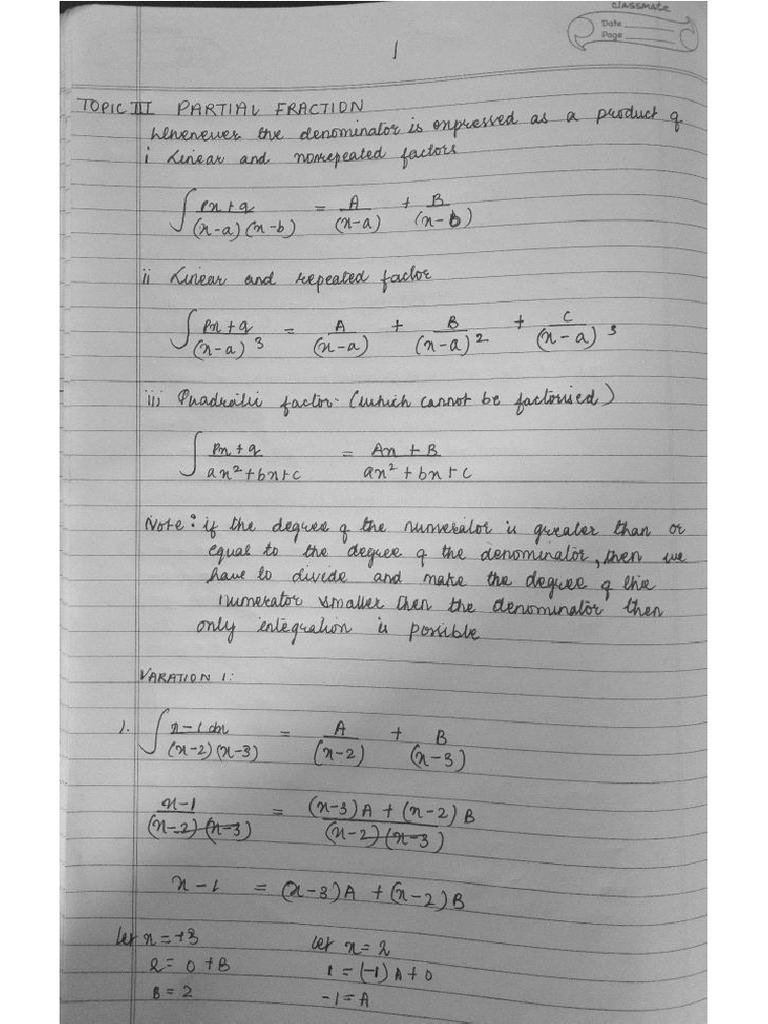 classmate
Date
Page
1
TOPIC III PARTIAL FRACTION
Whenever the denominator is expressed as a product of
i Linear and nonrepeated factors
∫ px+q / (x-a)(x-b) = A / (x-a) + B / (x-b)
ii Linear and repeated factor
∫ px+q / (x-a)3 = A / (x-a) + B / (x-a)2 + C / (x-a)3
iii Quadratic factor: (which cannot be factorised)
∫ px+q / ax2+bx+c = Ax+B / ax2+bx+c
Note: if the degree of the numerator is greater than or
equal to the degree of the denominator, then we
have to divide and make the degree of the
numerator smaller then the denominator then
only integration is possible
VARATION 1:
1. ∫ x-1 dx / (x-2)(x-3) = A / (x-2) + B / (x-3)
x-1 / (x-2)(x-3) = (x-3)A + (x-2)B / (x-2)(x-3)
x-1 = (x-3)A + (x-2)B
let x=+3 let x=2
2= 0+B 1=(-1)A+0
B=2 -1=A